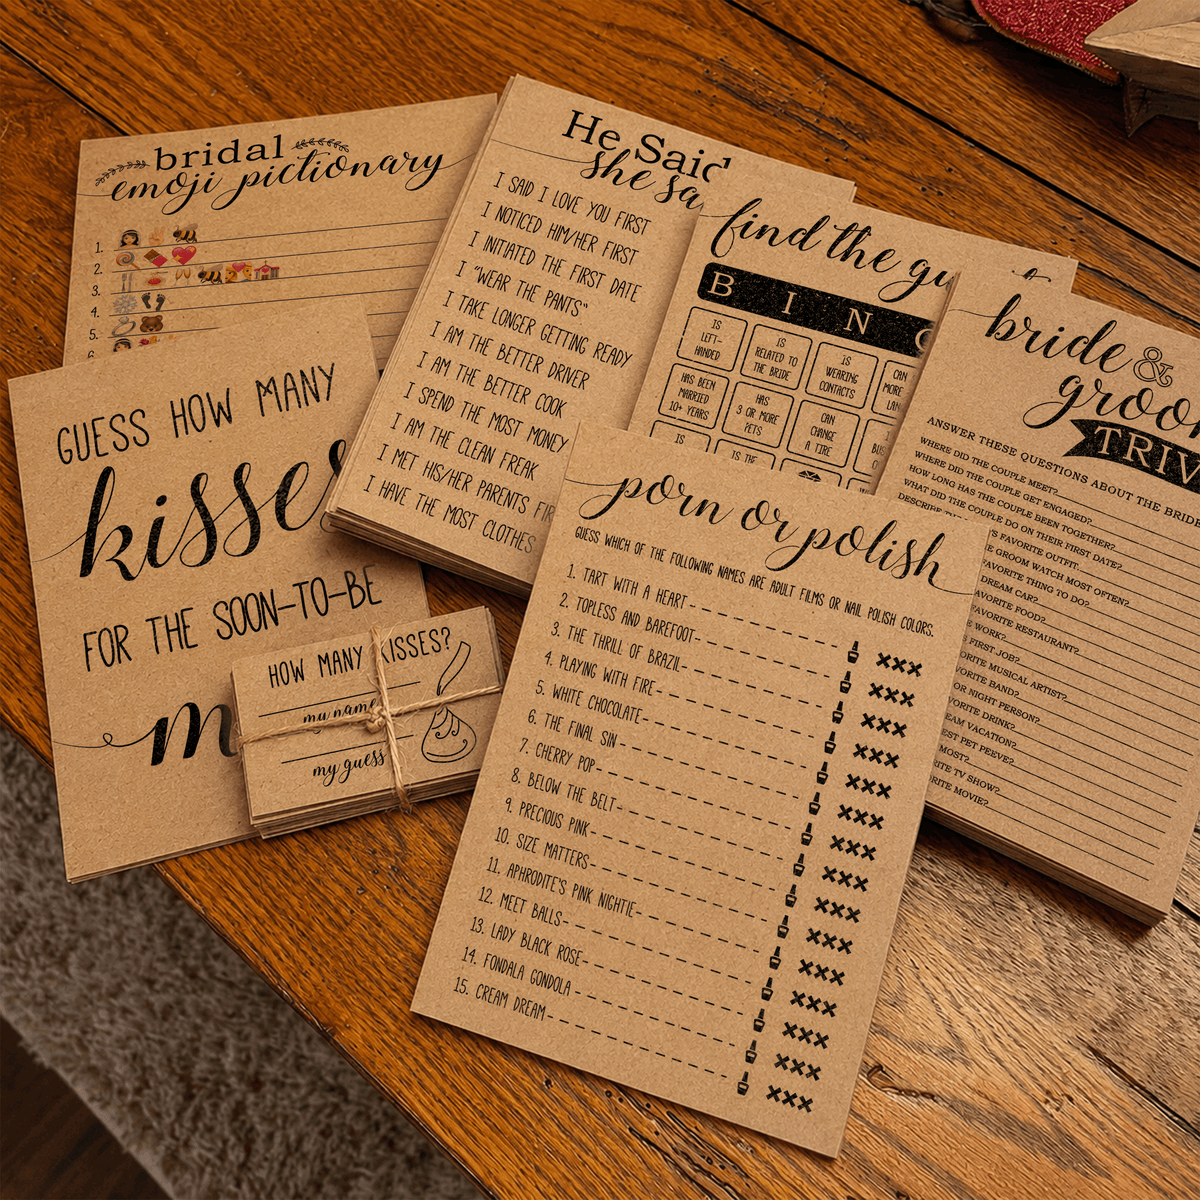 bridal
emoji pictionary
1.
2.
3.
4.
5.
6.
He Said
she sa
I SAID I LOVE YOU FIRST
I NOTICED HIM/HER FIRST
I INITIATED THE FIRST DATE
I "WEAR THE PANTS"
I TAKE LONGER GETTING READY
I AM THE BETTER DRIVER
I AM THE BETTER COOK
I SPEND THE MOST MONEY
I AM THE CLEAN FREAK
I MET HIS/HER PARENTS FIR
I HAVE THE MOST CLOTHES
find the gu
B I N G
IS LEFT-HANDED
IS RELATED TO THE BRIDE
IS WEARING CONTACTS
CAN MORE LAN
HAS BEEN MARRIED 10+ YEARS
HAS 3 OR MORE PETS
CAN CHANGE A TIRE
IS
IS THE
bride &
groo
TRIV
ANSWER THESE QUESTIONS ABOUT THE BRIDE
WHERE DID THE COUPLE MEET?
WHERE DID THE COUPLE GET ENGAGED?
HOW LONG HAS THE COUPLE BEEN TOGETHER?
WHAT DID THE COUPLE DO ON THEIR FIRST DATE?
DESCRIBE 'S FAVORITE OUTFIT
E GROOM WATCH MOST OFTEN?
FAVORITE THING TO DO?
DREAM CAR?
AVORITE FOOD?
AVORITE RESTAURANT?
E WORK?
FIRST JOB?
ORITE MUSICAL ARTIST?
VORITE BAND?
OR NIGHT PERSON?
VORITE DRINK?
EAM VACATION?
EST PET PEEVE?
MOST?
RITE TV SHOW?
RITE MOVIE?
GUESS HOW MANY
kisses
FOR THE SOON-TO-BE
m
HOW MANY KISSES?
my name
my guess
porn or polish
GUESS WHICH OF THE FOLLOWING NAMES ARE ADULT FILMS OR NAIL POLISH COLORS.
1. TART WITH A HEART XXX
2. TOPLESS AND BAREFOOT XXX
3. THE THRILL OF BRAZIL XXX
4. PLAYING WITH FIRE XXX
5. WHITE CHOCOLATE XXX
6. THE FINAL SIN XXX
7. CHERRY POP XXX
8. BELOW THE BELT XXX
9. PRECIOUS PINK XXX
10. SIZE MATTERS XXX
11. APHRODITE'S PINK NIGHTIE XXX
12. MEET BALLS XXX
13. LADY BLACK ROSE XXX
14. FONDALA GONDOLA XXX
15. CREAM DREAM XXX